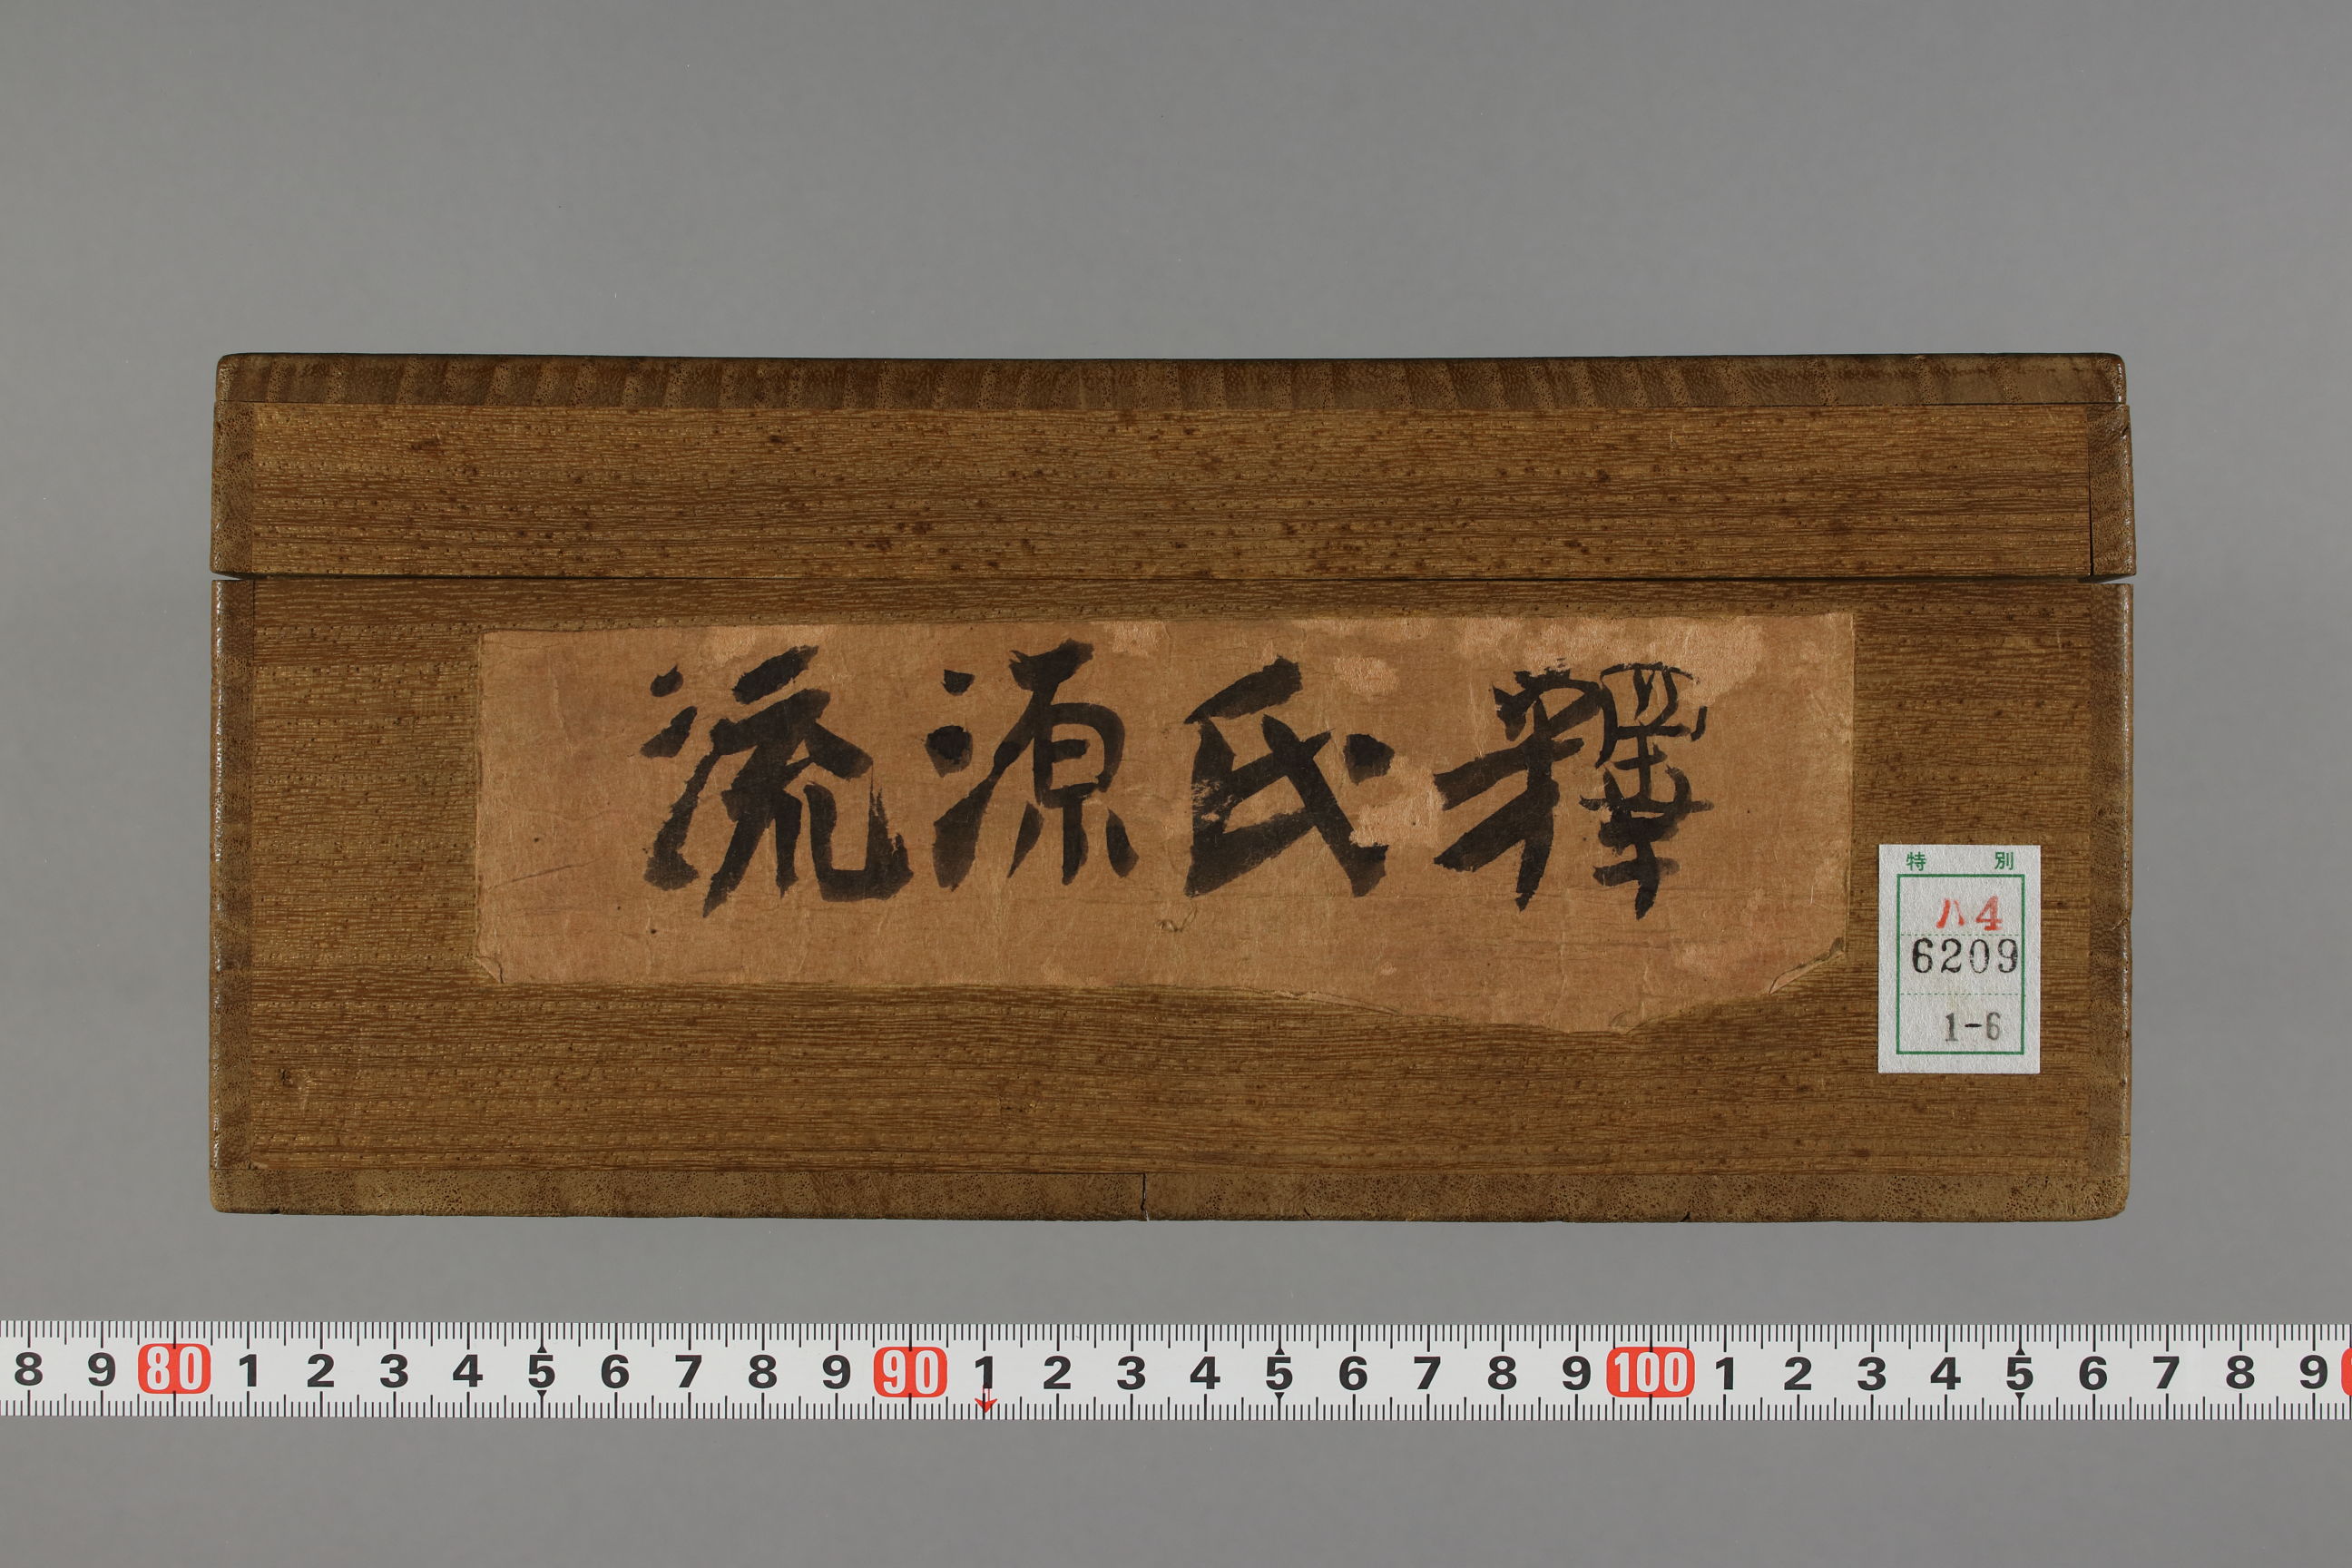 釋氏源流
特別
ハ4
6209
1-6
8 9 80 1 2 3 4 5 6 7 8 9 90 1 2 3 4 5 6 7 8 9 100 1 2 3 4 5 6 7 8 9